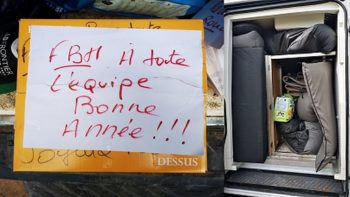 FBH À toute
L'équipe
Bonne
Année !!!
DESSUS